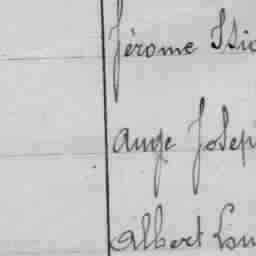 Jérome Isid
Ange Josep
Albert Lou